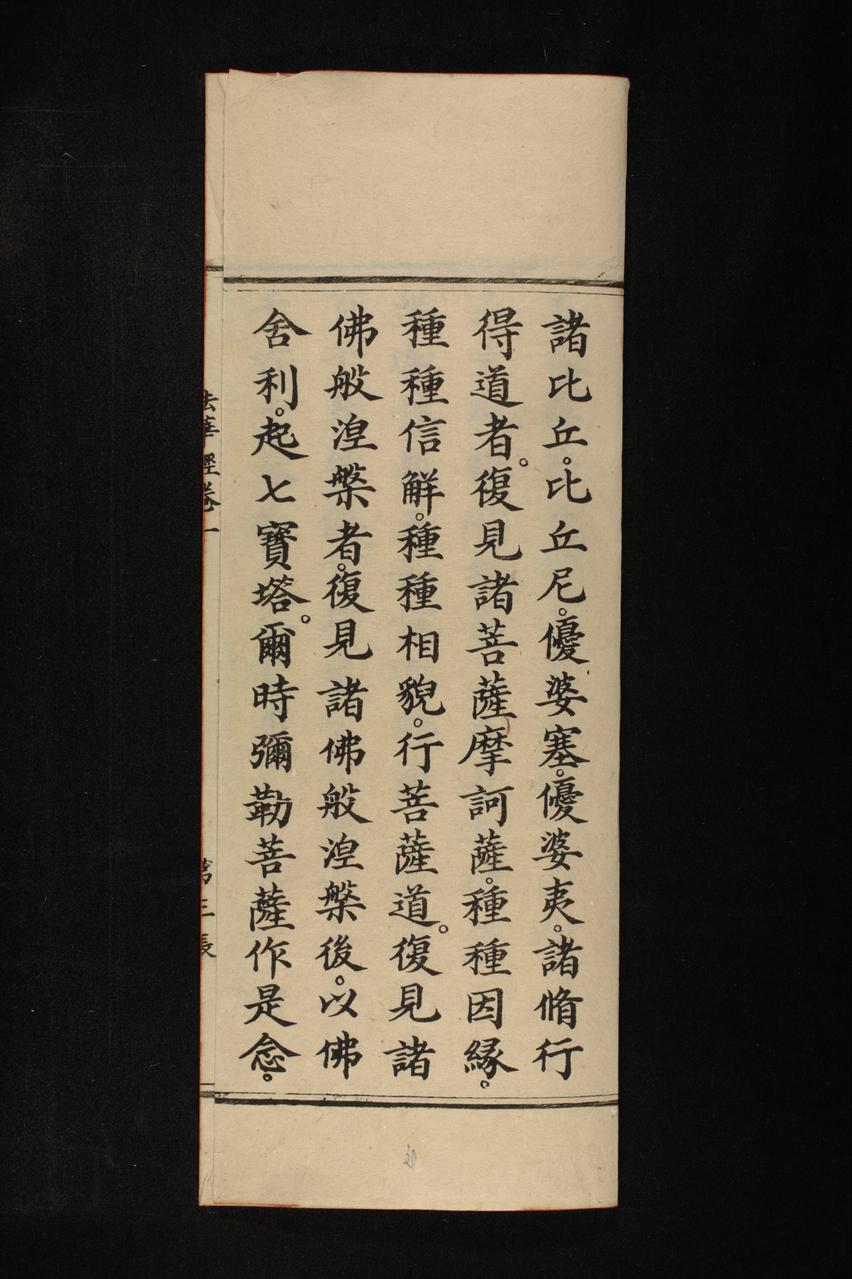 諸比丘。比丘尼。優婆塞。優婆夷。諸脩行
得道者。復見諸菩薩摩訶薩。種種因緣。
種種信解。種種相貌。行菩薩道。復見諸
佛般涅槃者。復見諸佛般涅槃後。以佛
舍利。起七寶塔。爾時彌勒菩薩作是念。
法華經卷一
第三張